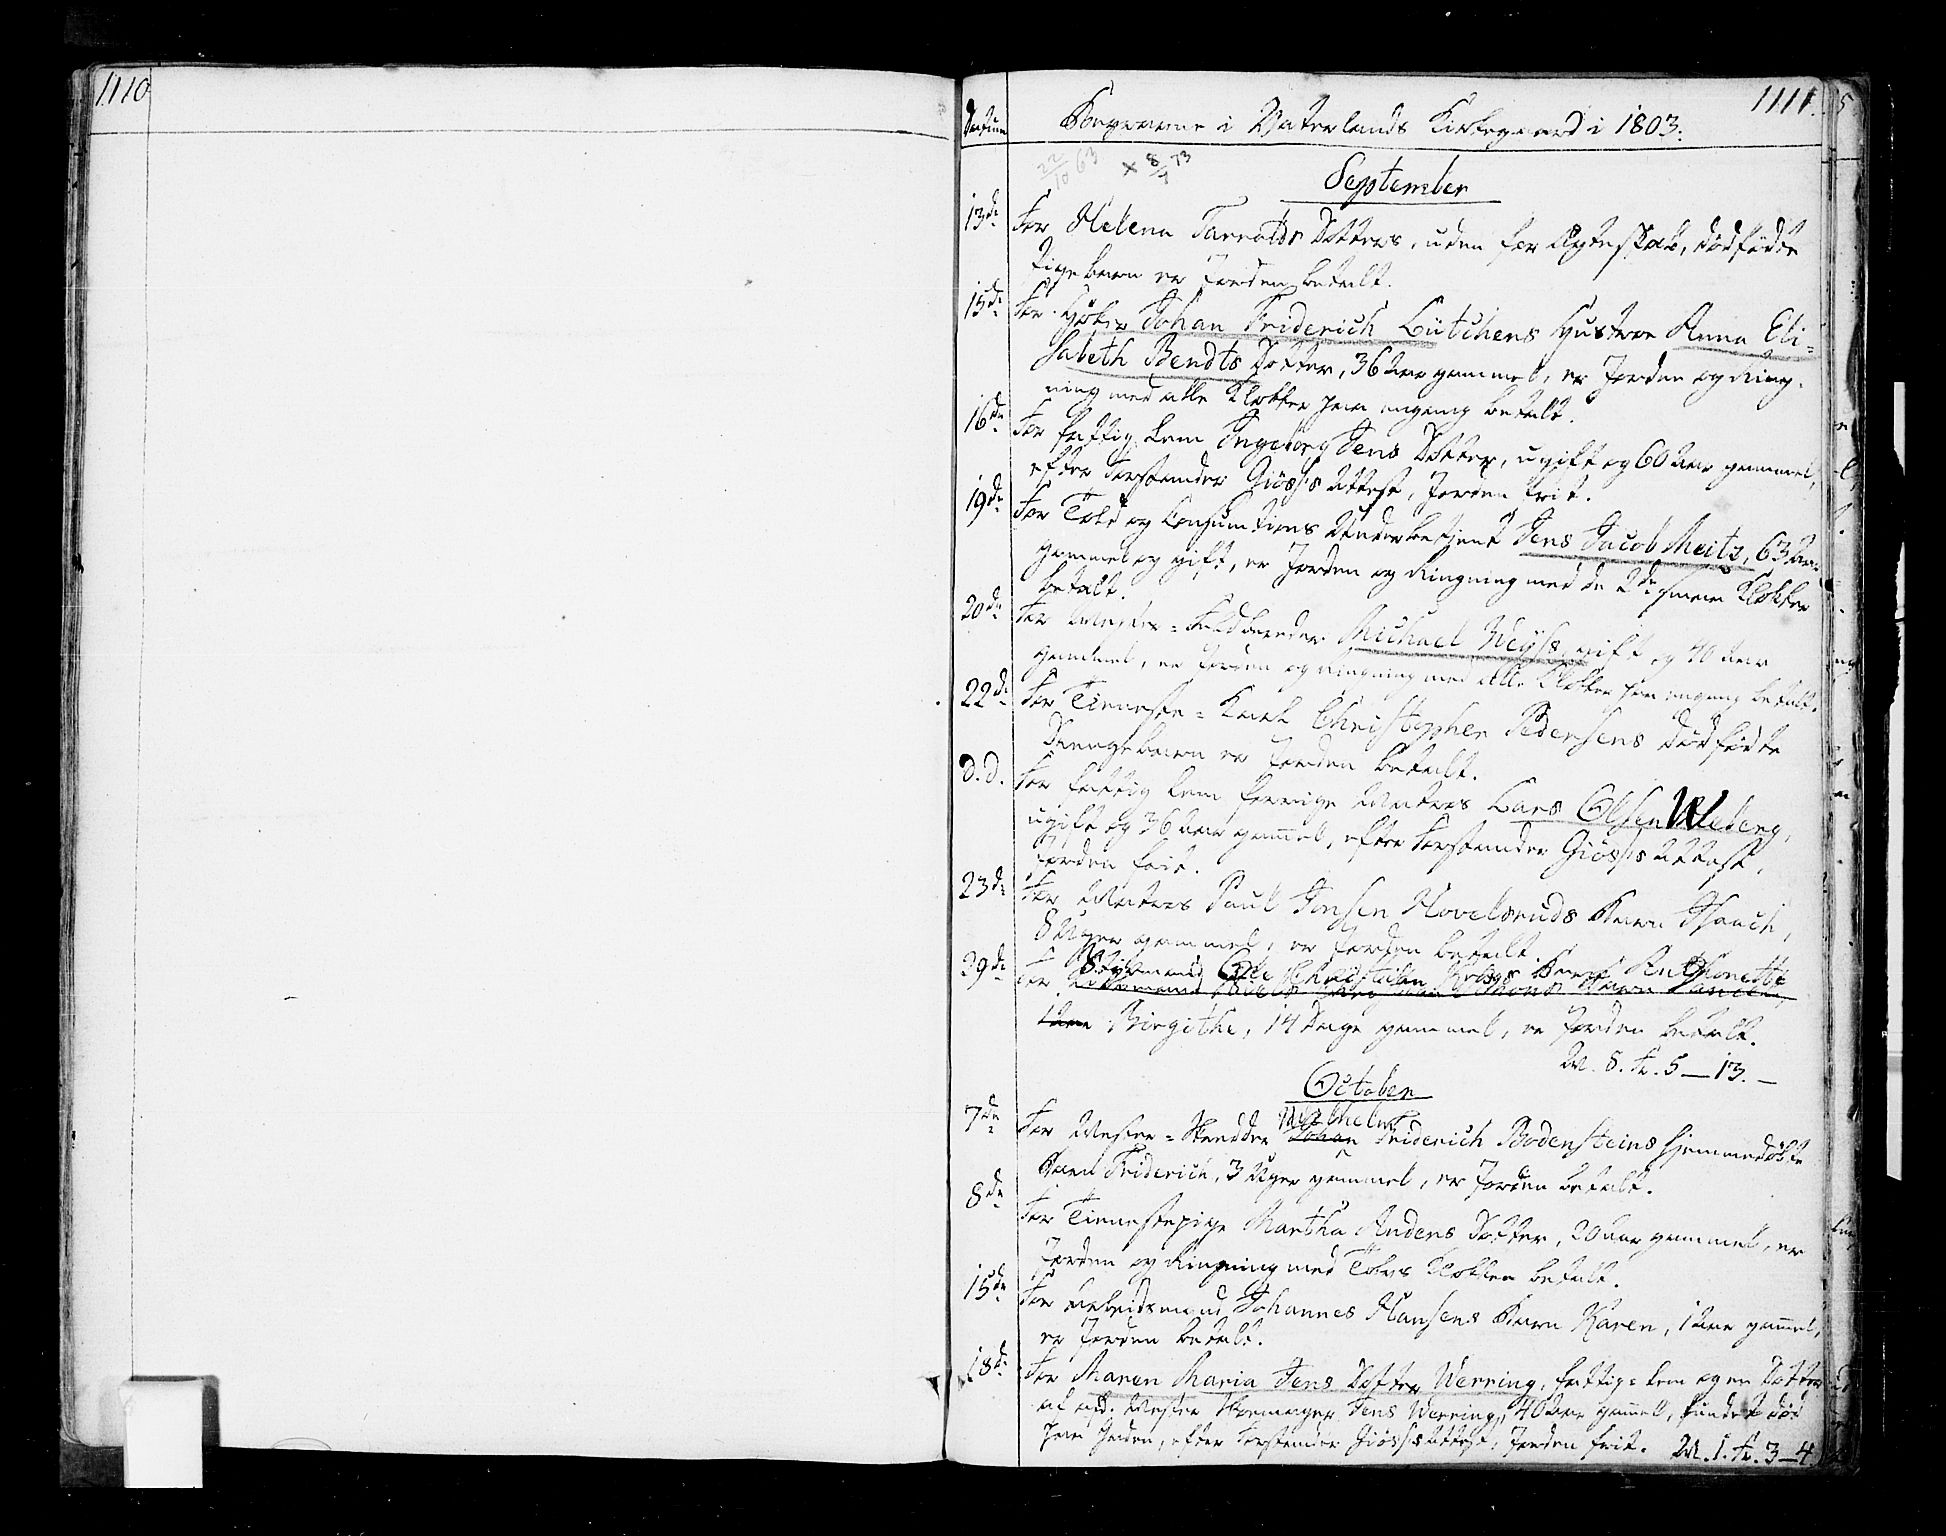 1110
1111.
Datum
Begravne i Vaterlands Kirkegaard i 1803.
22/10 63 × 8/7 73
September
13de For Helena Taraldr Dotters, uden for Ægteskab, dødfødte
Pigebarn er Jorden betalt.
15de For Høker Johan Friderich Lütchens Hustroe Anna Eli=
sabeth Bendts Dotter, 36 Aar gammel, er Jorden og Ring-
ning med alle Klokker paa engang betalt.
16de For fattig Lem Ingeborg Jens Dotter, ugift og 60 Aar gammel,
efter Forstander Giös's Attest, Jorden frit.
19de For Told og Consumtions Underbetjent Jens Jacob Meitz, 63 Aar
gammel og gift, er Jorden og Ringning med de 2de smaae Klokker
betalt.
20de For Mester= Michael Weyss, gift og 40 Aar
gammel, er Jorden og Ringning med alle Klokker paa engang betalt.
22de For Tieneste=Karl Christopher Pedersens dødfødte
Drengebarn er Jorden betalt.
d.d. For fattig Lem forrige Matros Lars Olsen Weberg,
ugift og 36 Aar gammel, efter Forstander Giös's Attest,
Jorden frit.
23de For Matros Paul Jonsen Hovelsruds Barn Isaach,
8 Uger gammel, er Jorden betalt.
29de For Styrmand Ole Christian Barn Anthonette
Birgithe, 14 Dage gammel, er Jorden betalt.
M. 8. Fr. 5 — 13. —
October
7de For Mester=Skrædder Wilhelm Friderich Bodensteins hjemmedøbte
Barn Friderich, 3 Uger gammel, er Jorden betalt.
8de For Tienestepige Martha Anders Dotter, 20 Aar gammel, er
Jorden og Ringning med Klokken betalt.
15de For Arbeidsmand Johannes Hansens Barn Karen, 1 Aar gammel,
er Jorden betalt.
18de For Maren Maria Jens Dotter Werring, fattig=Lem og en Dotter
af afd. Mester Skomager Jens Werring, 40 Aar gammel, fundet død
paa Heden, efter Forstander Giös's Attest, Jorden frit. M. 1. Fr. 3 — 4.